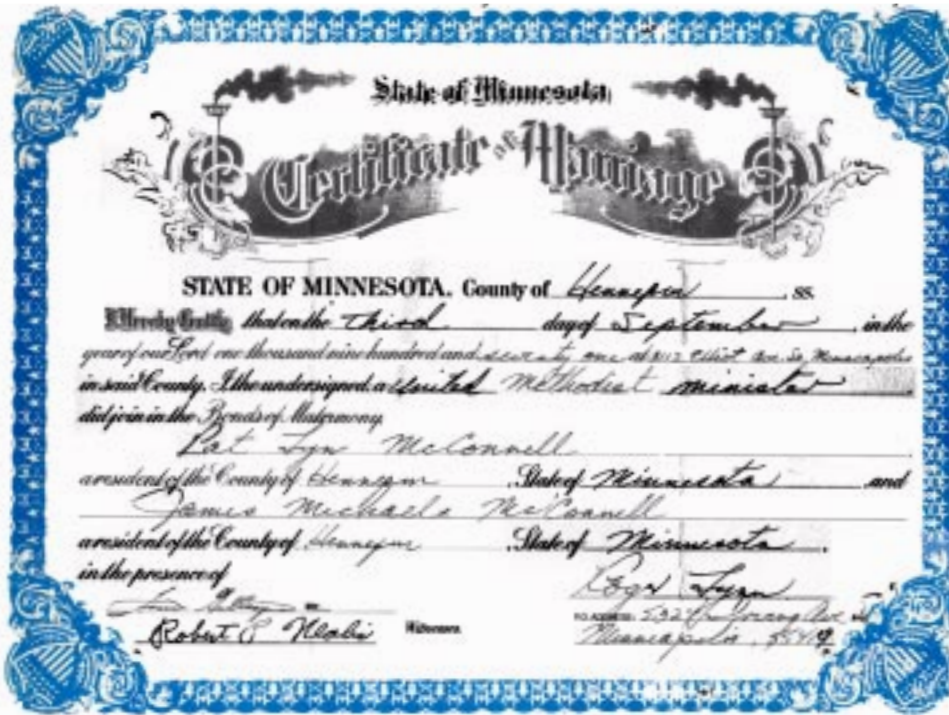 State of Minnesota
Certificate of Marriage
STATE OF MINNESOTA. County of Hennepin, SS.
I Hereby Certify that on the third day of September, in the
year of our Lord one thousand nine hundred and seventy one at Elliot Ave. So, Minneapolis
in said County, I the undersigned, a United Methodist minister
did join in the Bonds of Matrimony,
Pat Lyn McConnell
a resident of the County of Hennepin, State of Minnesota and
James Michael McConnell
a resident of the County of Hennepin, State of Minnesota,
in the presence of
Roger Lynn
Robert Witnesses
P.O. ADDRESS Ave
Minneapolis,